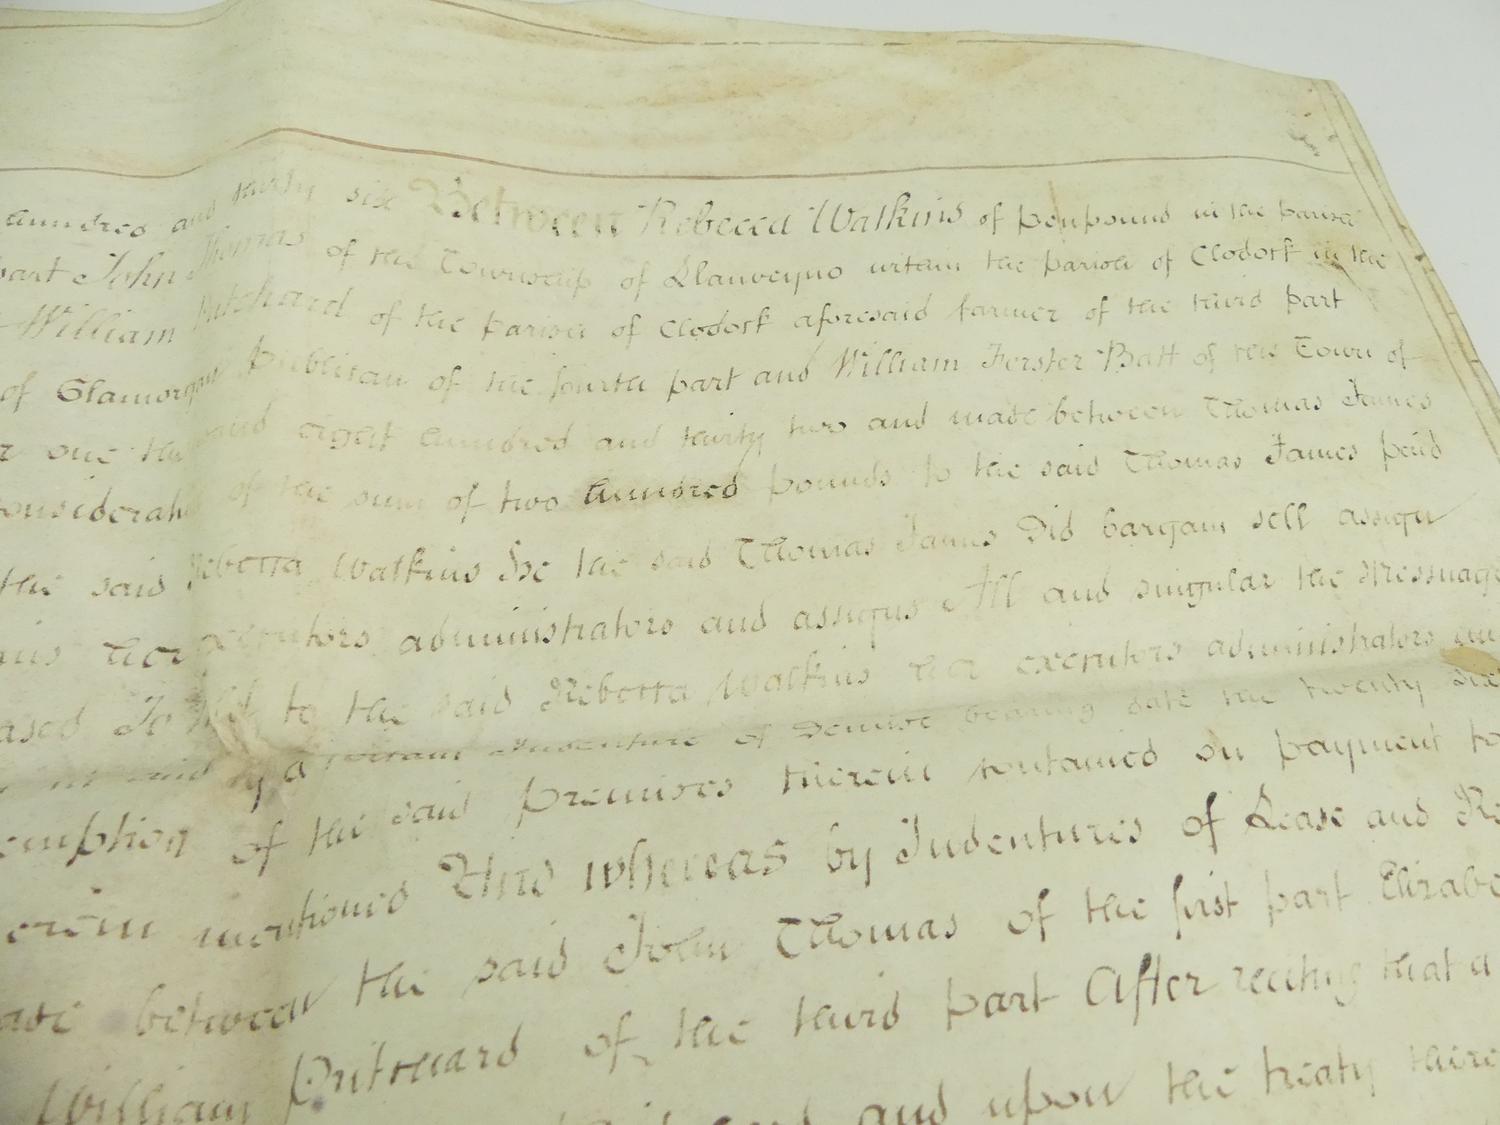 hundred and thirty six Between Rebecca Watkins of Penpound in the parish
part John Thomas of the Township of Llanveyno within the parish of Clodock in the
William Pritchard of the parish of Clodock aforesaid farmer of the third part
of Glamorgan Publican of the fourth part and William Forster Batt of the Town of
one thousand eight hundred and thirty two and made between Thomas James
consideration of the sum of two hundred pounds to the said Thomas James paid
the said Rebecca Watkins He the said Thomas James Did bargain sell assign
her executors administrators and assigns All and singular the Messuage
to the said Rebecca Watkins her executors administrators an
by a certain Indenture of Demise bearing date the twenty six
emption of the said premises therein contained on payment to
erein mentioned And whereas by Indentures of Lease and Re
ade between the said John Thomas of the first part Elizabe
William Pritchard of the third part After reciting that a
and upon the treaty there